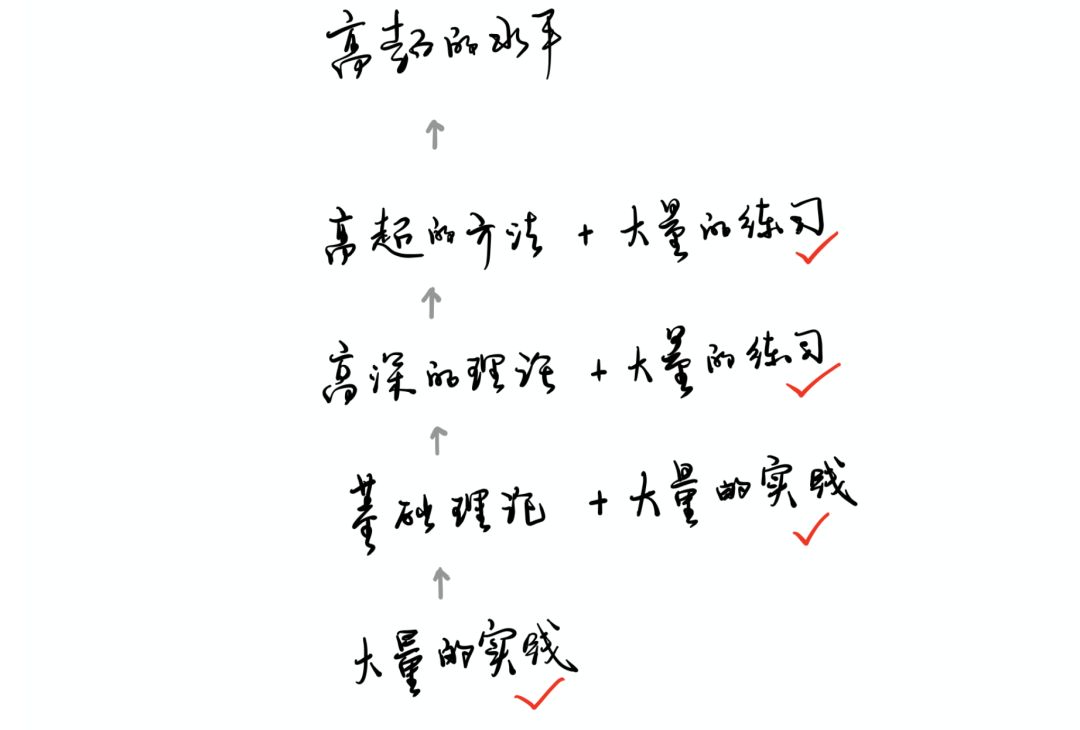 高超的水平
高超的方法 + 大量的练习
高深的理论 + 大量的练习
基础理论 + 大量的实践
大量的实践